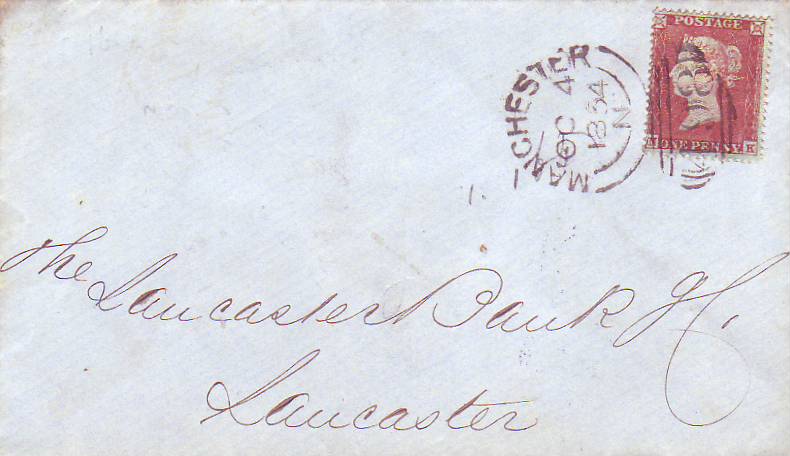 POSTAGE
ONE PENNY
K
MANCHESTER
OC 4
1854
N
The
Lancaster Bank
Lancaster